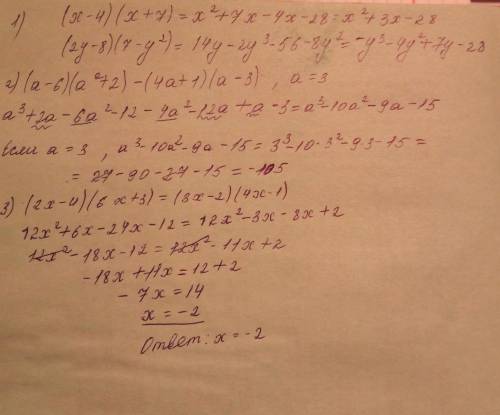 1) (x-4)(x+7)=x²+7x-4x-28=x²+3x-28
(2y-8)(7-y²)=14y-2y³-56-8y²=-y³-4y²+7y-28
2) (a-6)(a²+2)-(4a+1)(a-3), a=3
a³+2a-6a²-12-4a²-12a+a-3=a³-10a²-9a-15
Если a=3, a³-10a²-9a-15=3³-10·3²-9·3-15=
=27-90-27-15=-105
3) (2x-4)(6x+3)=(3x-2)(4x-1)
12x²+6x-24x-12=12x²-3x-8x+2
12x²-18x-12=12x²-11x+2
-18x+11x=12+2
-7x=14
x=-2
Ответ: x=-2